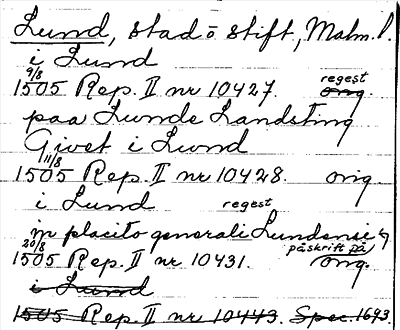 Lund, stad o stift, Malm. l.
i Lund
9/8 regest
1505 Rep. II nr 10427. orig.
paa Lunde Landsting
Givet i Lund
11/8
1505 Rep. II nr 10428. orig.
i Lund regest
in placito generali Lundensi
20/8 påskrift på
1505 Rep. II nr 10431. orig.
i Lund
1505 Rep. II nr 10443. Spec. 1693.